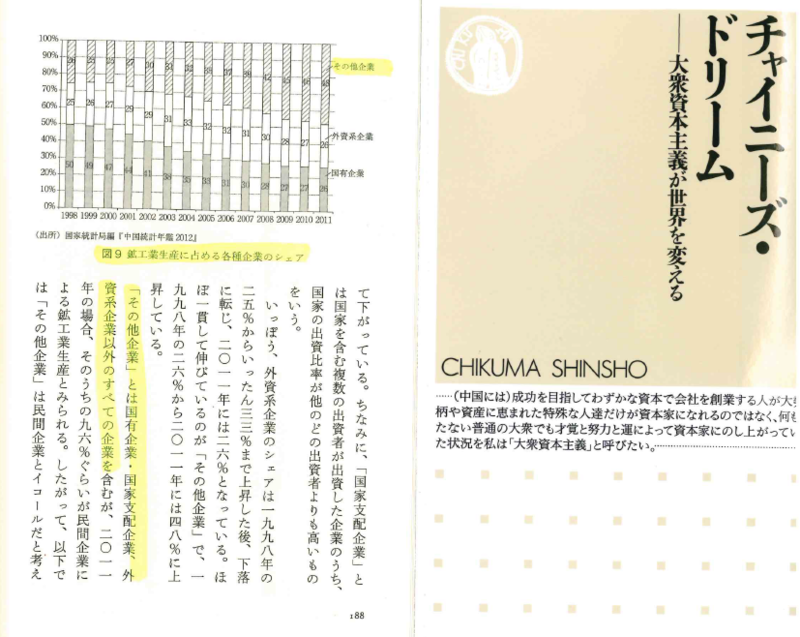 100%
90%
80%
70%
60%
50%
40%
30%
20%
10%
0%
25 26 27 29 29 31 33 32 32 31 30 28 27 26
50 49 47 44 41 38 35 33 31 30 28 27 27 26
その他企業
外資系企業
国有企業
1998 1999 2000 2001 2002 2003 2004 2005 2006 2007 2008 2009 2010 2011
(出所) 国家統計局編『中国統計年鑑2012』
図9 鉱工業生産に占める各種企業のシェア
て下がっている。ちなみに、「国家支配企業」と
は国家を含む複数の出資者が出資した企業のうち、
国家の出資比率が他のどの出資者よりも高いもの
をいう。
いっぽう、外資系企業のシェアは一九九八年の
二五%からいったん三三%まで上昇した後、下落
に転じ、二〇一一年には二六%となっている。ほ
ぼ一貫して伸びているのが「その他企業」で、一
九九八年の二六%から二〇一一年には四八%に上
昇している。
「その他企業」とは国有企業・国家支配企業、外
資系企業以外のすべての企業を含むが、二〇一一
年の場合、そのうちの九六%ぐらいが民間企業に
よる鉱工業生産とみられる。したがって、以下で
は「その他企業」は民間企業とイコールだと考え
188
チャイニーズ・
ドリーム
──大衆資本主義が世界を変える
CHIKUMA SHINSHO
……(中国には)成功を目指してわずかな資本で会社を創業する人が大
柄や資産に恵まれた特殊な人達だけが資本家になれるのではなく、何も
たない普通の大衆でも才覚と努力と運によって資本家にのし上がってい
た状況を私は「大衆資本主義」と呼びたい。